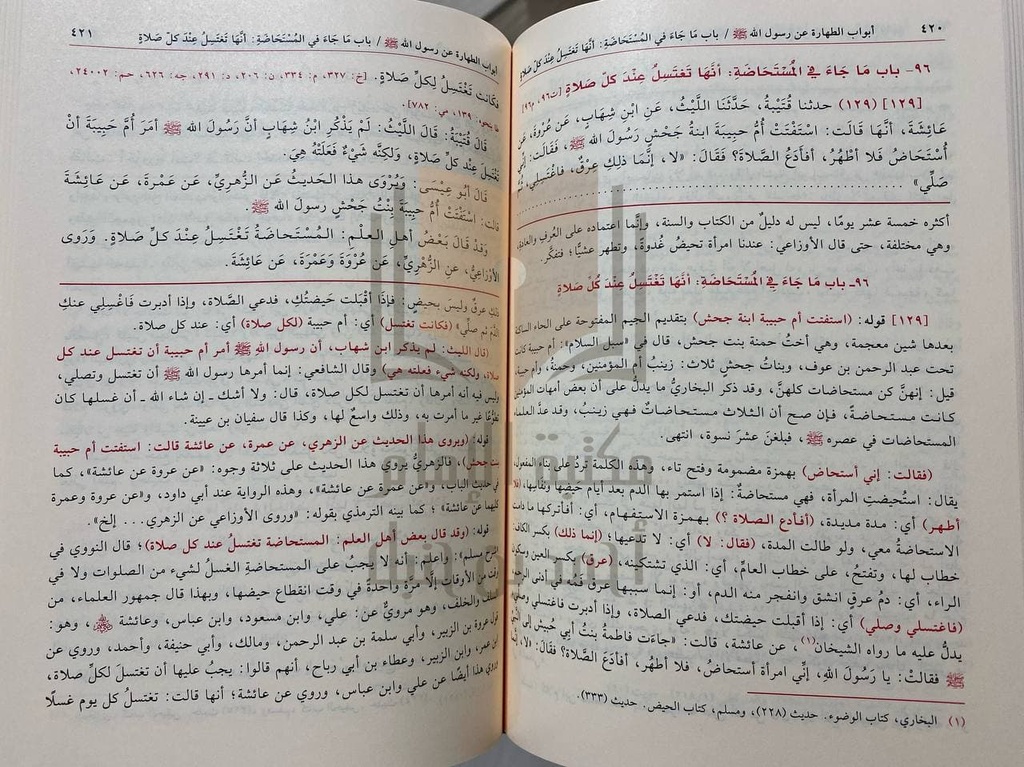 ٤٢٠
أبواب الطهارة عن رسول الله ﷺ / باب مَا جَاءَ في المُسْتَحَاضَةِ: أَنَّهَا تَغْتَسِلُ عِنْدَ كلّ صَلَاةٍ
٩٦- باب مَا جَاءَ فِي المُسْتَحَاضَةِ: أَنَّهَا تَغْتَسِلُ عِنْدَ كلّ صَلَاةٍ [ت٩٦، م٩٦]
[١٢٩] (١٢٩) حدثنا قُتَيْبَةُ، حَدَّثَنَا اللَّيْثُ، عَنِ ابْنِ شِهَابٍ، عَن عُرْوَةَ، عَن
عَائِشَةَ، أنَّهَا قَالَت: اسْتَفْتَتْ أُمُّ حبِيبَةَ ابنةُ جَحْشٍ رَسُولَ الله ﷺ، فَقَالَت: إنِّي
أُسْتَحَاضُ فلا أَطْهُرُ، أفأدَعُ الصَّلاةَ؟ فَقَالَ: «لا، إنَّمَا ذلِكِ عِرْقٌ، فَاغْتَسِلِي، ثُمَّ
صَلِّي»
أكثره خمسة عشر يومًا، ليس له دليلٌ من الكتاب والسنة، وإنَّما اعتماده على العُرفِ والعادة،
وهي مختلفة، حتى قال الأوزاعي: عندنا امرأة تحيضُ غُدوةً، وتطهر عشيًّا؛ فتفكَّر.
٩٦ـ باب مَا جَاءَ فِي المُسْتَحَاضَةِ: أَنَّهَا تَغْتَسِلُ عِنْدَ كُلّ صَلَاةٍ
[١٢٩] قوله: (استفتت أم حبيبة ابنة جحش) بتقديم الجيم المفتوحة على الحاء الساكنة
بعدها شين معجمة، وهي أختُ حمنة بنت جحش، قال في «سبل السلام»: أم حبيبة كانت
تحت عبد الرحمن بن عوف، وبناتُ جحشٍ ثلاث: زينبُ أم المؤمنين، وحمنةُ، وأم حبيبة،
قيل: إنهنَّ كن مستحاضات كلهنَّ، وقد ذكر البخاريُّ ما يدلُّ على أن بعض أمهات المؤمنين
كانت مستحاضةً، فإن صح أن الثلاث مستحاضاتٌ فهي زينبُ، وقد عدَّ العلماء
المستحاضات في عصره ﷺ، فبلغنَ عشرَ نسوة، انتهى.
(فقالت: إني أستحاض) بهمزة مضمومة وفتح تاء، وهذه الكلمة تردُ على بناء المفعول،
يقال: استُحيضتِ المرأة، فهي مستحاضةٌ: إذا استمر بها الدم بعد أيام حيضها ونفاسها، (فلا
أطهر) أي: مدة مديدة، (أفأدع الصلاة ؟) بهمزة الاستفهام، أي: أفأتركها ما دامت
الاستحاضةُ معي، ولو طالت المدة، (فقال: لا) أي: لا تدعيها؛ (إنما ذلك) بكسر الكاف:
خطاب لها، وتفتحُ، على خطاب العامِّ، أي: الذي تشتكينه، (عرق) بكسر العين وسكون
الراء، أي: دمُ عرقٍ انشق وانفجر منه الدم، أو: إنما سببها عرق فَمُه في أدنى الرحم،
(فاغتسلي وصلي) أي: إذا أقبلت حيضتك، فدعي الصلاة، وإذا أدبرت فاغتسلي وصلي،
يدلُّ عليه ما رواه الشيخان(١)، عن عائشة، قالت: «جاءَت فاطمةُ بنتُ أبي حُبيشٍ إلى النبي
ﷺ فقالتْ: يا رَسُولَ الله، إنِّي امرأة أستحاضُ، فلا أطهُر، أفأدَع الصَّلاة؟ فقالَ: «لا، إنما
(١) البخاري، كتاب الوضوء. حديث (٢٢٨)، ومسلم، كتاب الحيض. حديث (٣٣٣).
أبواب الطهارة عن رسول الله ﷺ / باب مَا جَاءَ في المُسْتَحَاضَةِ: أَنَّهَا تَغْتَسِلُ عِنْدَ كلّ صَلَاةٍ
٤٢١
فكَانَتْ تَغْتَسِلُ لِكلّ صَلاةٍ. [خ: ٣٢٧، م: ٣٣٤، ن: ٢٠٦، د: ٢٩١، جه: ٦٢٦، حم: ٢٤٠٠٢،
طا بنحوه: ١٣٩، مي: ٧٨٢].
قَال قُتَيْبَةُ: قَالَ اللَّيْثُ: لَمْ يَذْكُرِ ابْنُ شِهَابٍ أَنَّ رَسُولَ الله ﷺ أمَرَ أُمَّ حَبِيبَةَ أنْ
تَغْتَسِلَ عِنْدَ كلّ صَلاةٍ، وَلَكِنَّه شَيْءٌ فَعَلَتْهُ هِيَ.
قَالَ أبُو عِيسَى: وَيُرْوَى هذا الحَديثُ عَن الزُّهرِيِّ، عَن عَمْرَةَ، عَن عَائِشَةَ
قالت: اسْتَفْتَتْ أُمُّ حَبِيبَةَ بِنْتُ جَحْشٍ رسولَ الله ﷺ.
وَقَدْ قَالَ بَعْضُ أهلِ العلْمِ: المُسْتَحَاضَةُ تَغْتَسِلُ عِنْدَ كلّ صَلاةٍ. وَرَوَى
الأوْزَاعِيُّ، عن الزُّهْرِيِّ، عَن عُرْوَةَ وَعَمْرَةَ، عَن عَائِشَةَ.
ذلكِ عرقٌ وليسَ بحيضٍ: فإذَا أقْبَلت حَيضتُكِ، فدَعي الصَّلاة، وإذا أدبرت فَاغْسِلي عنكِ
الدَّمَ ثم صلِّي» (فكانت تغتسل) أي: أم حبيبة (لكل صلاة) أي: عند كل صلاة.
(قال الليث: لم يذكر ابن شهاب، أن رسول الله ﷺ أمر أم حبيبة أن تغتسل عند كل
صلاة، ولكنه شيء فعلته هي) وقال الشافعي: إنما أمرها رسول الله ﷺ أن تغتسل وتصلي،
وليس فيه أنه أمرها أن تغتسل لكل صلاة، قال: ولا أشك ـ إن شاء الله ـ أن غسلها كان
تطوُّعًا غير ما أمرت به، وذلك واسعٌ لها، وكذا قال سفيان بن عيينة.
قوله: (ويروى هذا الحديث عن الزهري، عن عمرة، عن عائشة قالت: استفتت أم حبيبة
بنت جحش)، فالزهريُّ يروي هذا الحديث على ثلاثة وجوه: «عن عروة عن عائشة»، كما
في حديث الباب، و«عن عمرة عن عائشة»، وهذه الرواية عند أبي داود، و«عن عروة وعمرة
كليهما عن عائشة»؛ كما بينه الترمذي بقوله: «وروى الأوزاعي عن الزهري... إلخ».
قوله: (وقد قال بعض أهل العلم: المستحاضة تغتسلُ عند كل صلاة)؛ قال النووي في
«شرح مسلم»: واعلم، أنه لا يجبُ على المستحاضةِ الغسلُ لشيء من الصلوات ولا في
وقت من الأوقات إلا مرَّة واحدة في وقت انقطاع حيضها، وبهذا قال جمهور العلماء، من
السلف والخلف، وهو مرويٌّ عن: علي، وابن مسعود، وابن عباس، وعائشة ﵃، وهو:
قول عروة بن الزبير، وأبي سلمة بن عبد الرحمن، ومالك، وأبي حنيفة، وأحمد، وروي عن
ابن عمر، وابن الزبير، وعطاء بن أبي رباح، أنهم قالوا: يجبُ عليها أن تغتسلَ لكلِّ صلاة،
وروي هذا أيضًا عن علي وابن عباس، وروي عن عائشة؛ أنها قالت: تغتسلُ كل يوم غسلًا